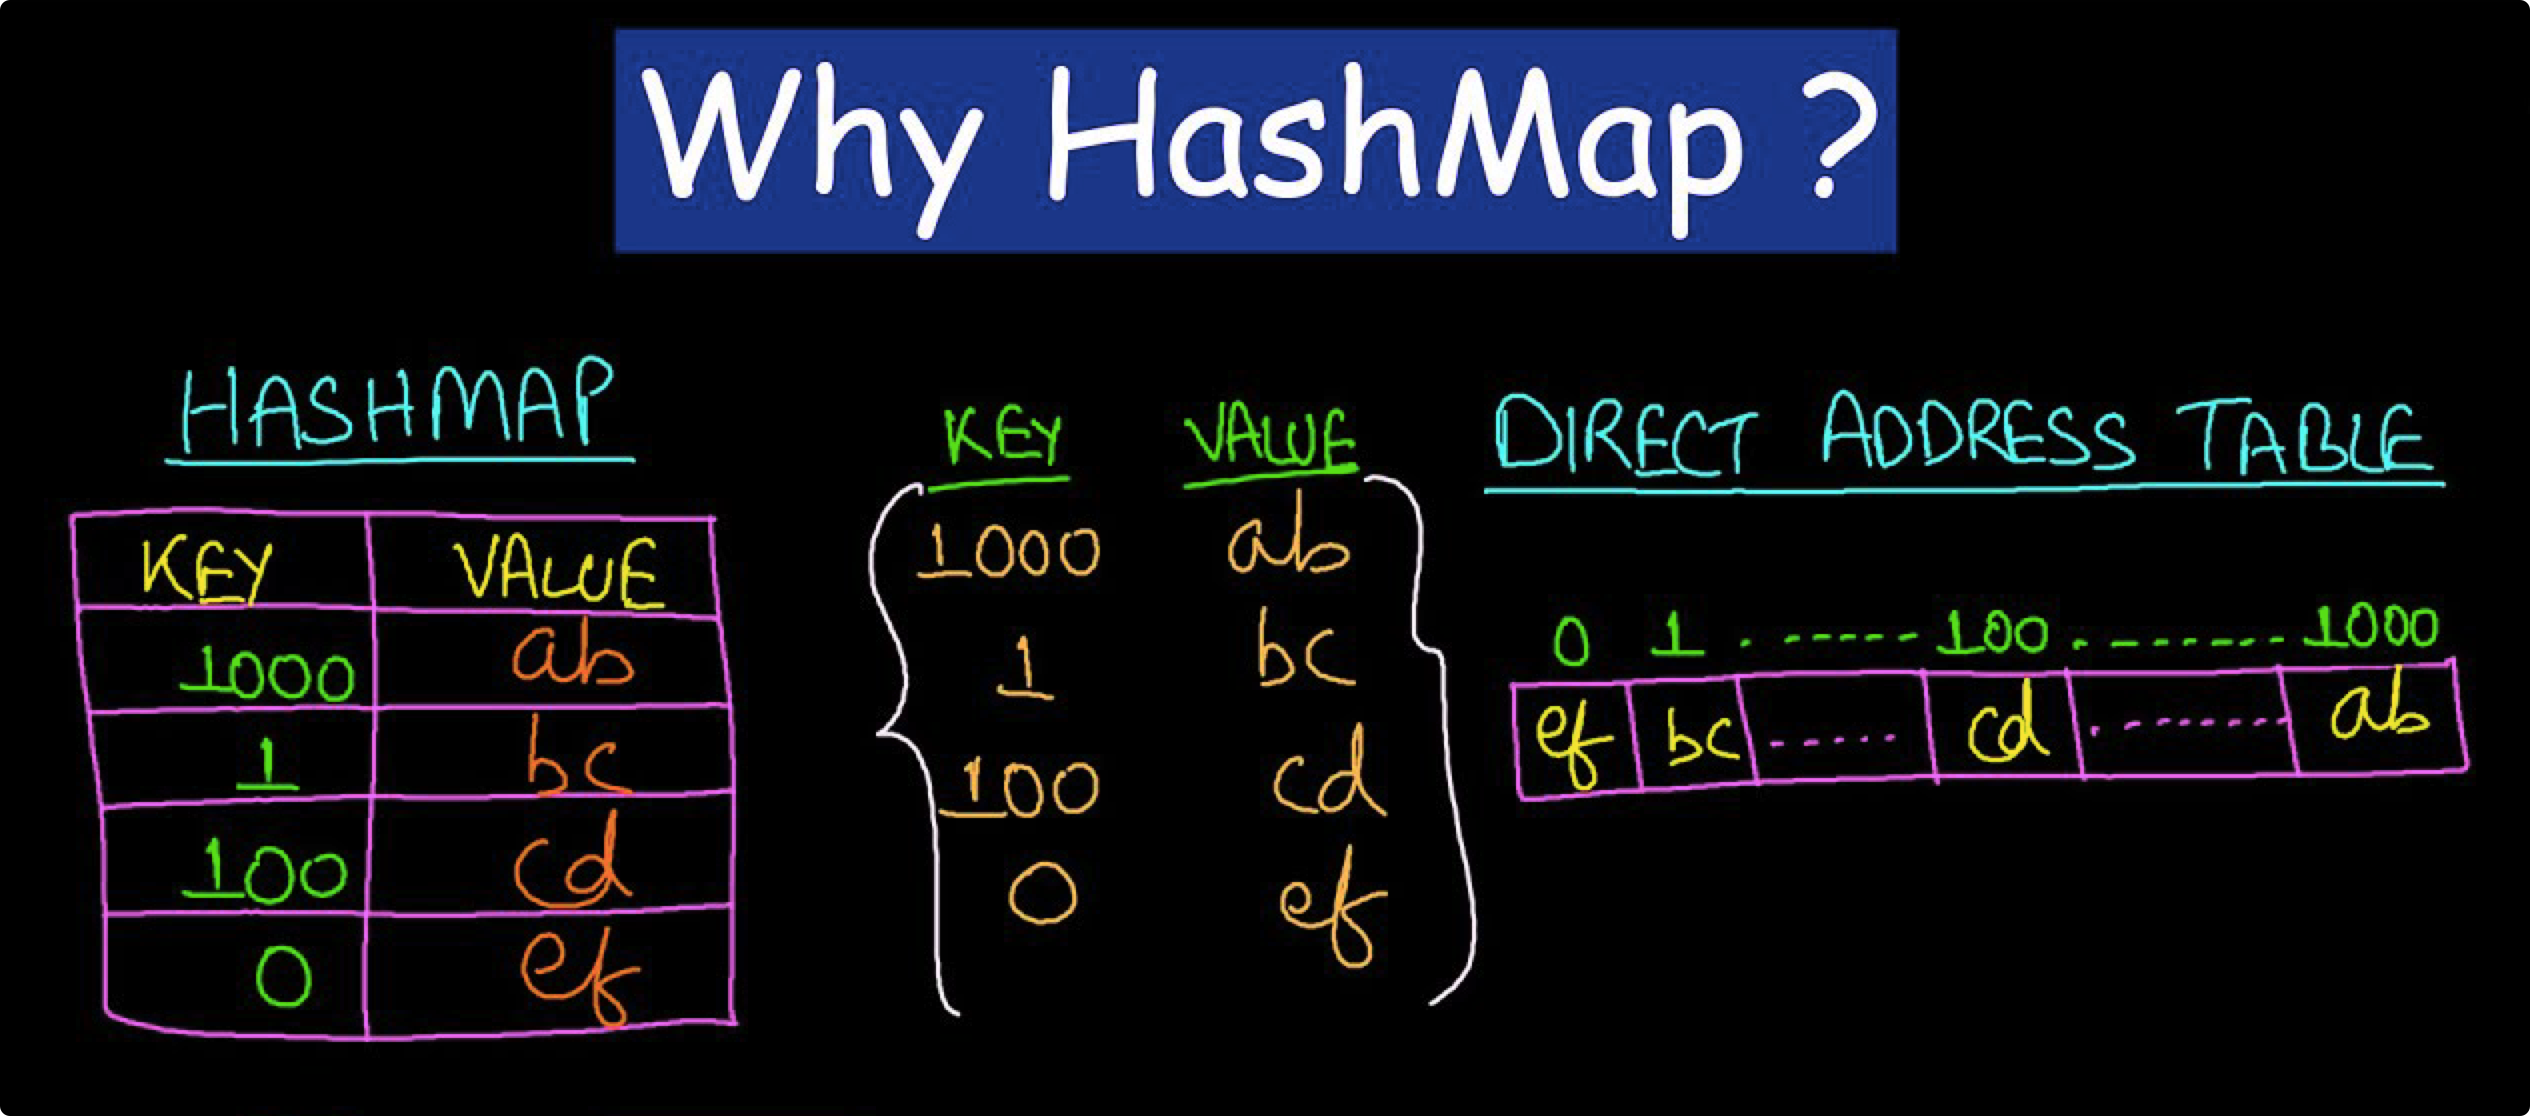 Why HashMap ?
HASHMAP
KEY VALUE
1000 ab
1 bc
100 cd
0 ef
KEY VALUE
1000 ab
1 bc
100 cd
0 ef
DIRECT ADDRESS TABLE
0 1 . ----- 100 . ------- 1000
ef bc ..... cd . ------- ab